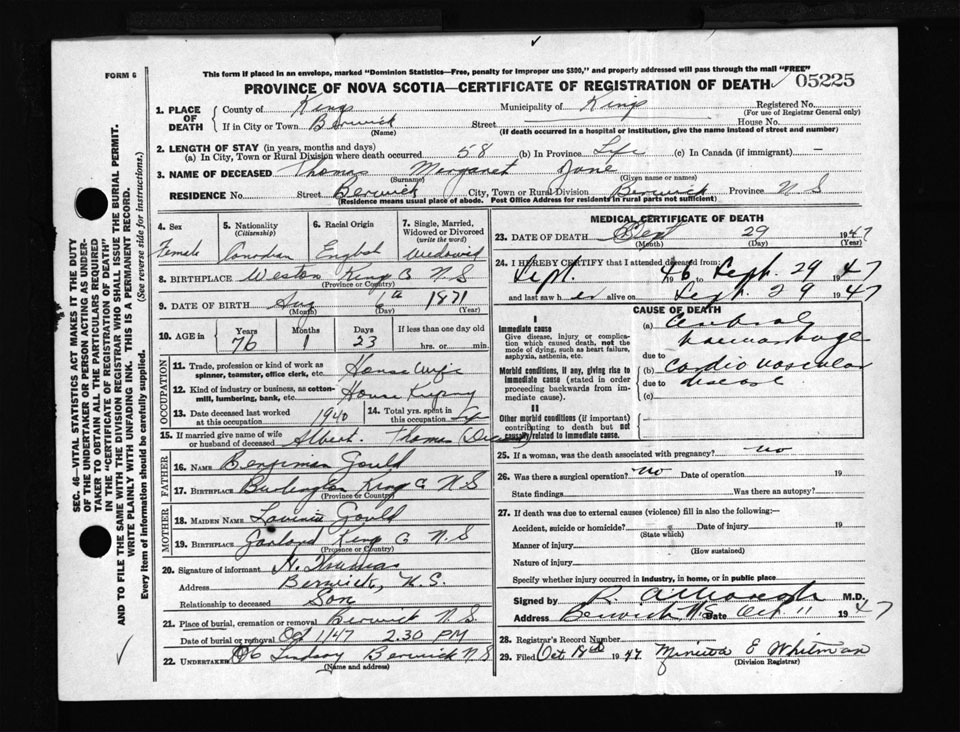 FORM 6
This form if placed in an envelope, marked "Dominion Statistics—Free, penalty for improper use $300," and properly addressed will pass through the mail "FREE"
PROVINCE OF NOVA SCOTIA—CERTIFICATE OF REGISTRATION OF DEATH 05225
1. PLACE OF DEATH
County of Kings Municipality of Kings Registered No.
(For use of Registrar General only)
If in City or Town Berwick Street House No.
(Name) (If death occurred in a hospital or institution, give the name instead of street and number)
2. LENGTH OF STAY (in years, months and days)
(a) In City, Town or Rural Division where death occurred 58 (b) In Province Life (c) In Canada (if immigrant) —
3. NAME OF DECEASED Thomas Margaret Jane
(Surname) (Given name or names)
RESIDENCE No. Street Berwick City, Town or Rural Division Berwick Province N S
(Residence means usual place of abode. Post Office Address for residents in rural parts not sufficient)
4. Sex
Female
5. Nationality
(Citizenship)
Canadian
6. Racial Origin
English
7. Single, Married, Widowed or Divorced
(write the word)
Widowed
8. BIRTHPLACE Weston Kings Co N S
(Province or Country)
9. DATE OF BIRTH Aug 6th 1871
(Month) (Day) (Year)
10. AGE in
Years Months Days If less than one day old
76 1 23 hrs. or min.
OCCUPATION
11. Trade, profession or kind of work as spinner, teamster, office clerk, etc. Housewife
12. Kind of industry or business, as cotton-mill, lumbering, bank, etc. House Keeping
13. Date deceased last worked at this occupation 1940
14. Total yrs. spent in this occupation Life
15. If married give name of wife or husband of deceased Albert Thomas (Deceased)
FATHER
16. NAME Benjiman Gould
17. BIRTHPLACE Burlington Kings Co N S
(Province or Country)
MOTHER
18. MAIDEN NAME Lavinia Gould
19. BIRTHPLACE Garland Kings Co N S
(Province or Country)
20. Signature of informant H. Thomas
Address Berwick, N.S.
Relationship to deceased Son
21. Place of burial, cremation or removal Berwick N.S.
Date of burial or removal Oct 1/47 2.30 PM
22. UNDERTAKER Lindsay Berwick N S
(Name and address)
MEDICAL CERTIFICATE OF DEATH
23. DATE OF DEATH Sept 29 1947
(Month) (Day) (Year)
24. I HEREBY CERTIFY that I attended deceased from:
Sept. 1946 to Sept. 29 1947
and last saw her alive on Sept. 29 1947
CAUSE OF DEATH
I
Immediate cause
Give disease, injury or complication which caused death, not the mode of dying, such as heart failure, asphyxia, asthenia, etc.
(a) Cerebral haemorrhage
due to
Morbid conditions, if any, giving rise to immediate cause (stated in order proceeding backwards from immediate cause).
(b) Cardio vascular
due to disease
(c)
II
Other morbid conditions (if important) contributing to death but not causally related to immediate cause.
25. If a woman, was the death associated with pregnancy? no
26. Was there a surgical operation? no Date of operation 19
State findings Was there an autopsy?
27. If death was due to external causes (violence) fill in also the following:—
Accident, suicide or homicide? Date of injury 19
(State which)
Manner of injury
(How sustained)
Nature of injury
Specify whether injury occurred in industry, in home, or in public place
Signed by M.D.
Berwick N S Date Oct 11 1947
28. Registrar's Record Number
29. Filed Oct 18th 1947 Minetta E Whitman
(Division Registrar)
SEC. 46—VITAL STATISTICS ACT MAKES IT THE DUTY
OF THE UNDERTAKER OR PERSON ACTING AS UNDER-
TAKER TO OBTAIN ALL THE PARTICULARS REQUIRED
IN THE "CERTIFICATE OF REGISTRATION OF DEATH"
AND TO FILE THE SAME WITH THE DIVISION REGISTRAR WHO SHALL ISSUE THE BURIAL PERMIT.
WRITE PLAINLY WITH UNFADING INK. THIS IS A PERMANENT RECORD.
Every item of information should be carefully supplied. (See reverse side for instructions.)